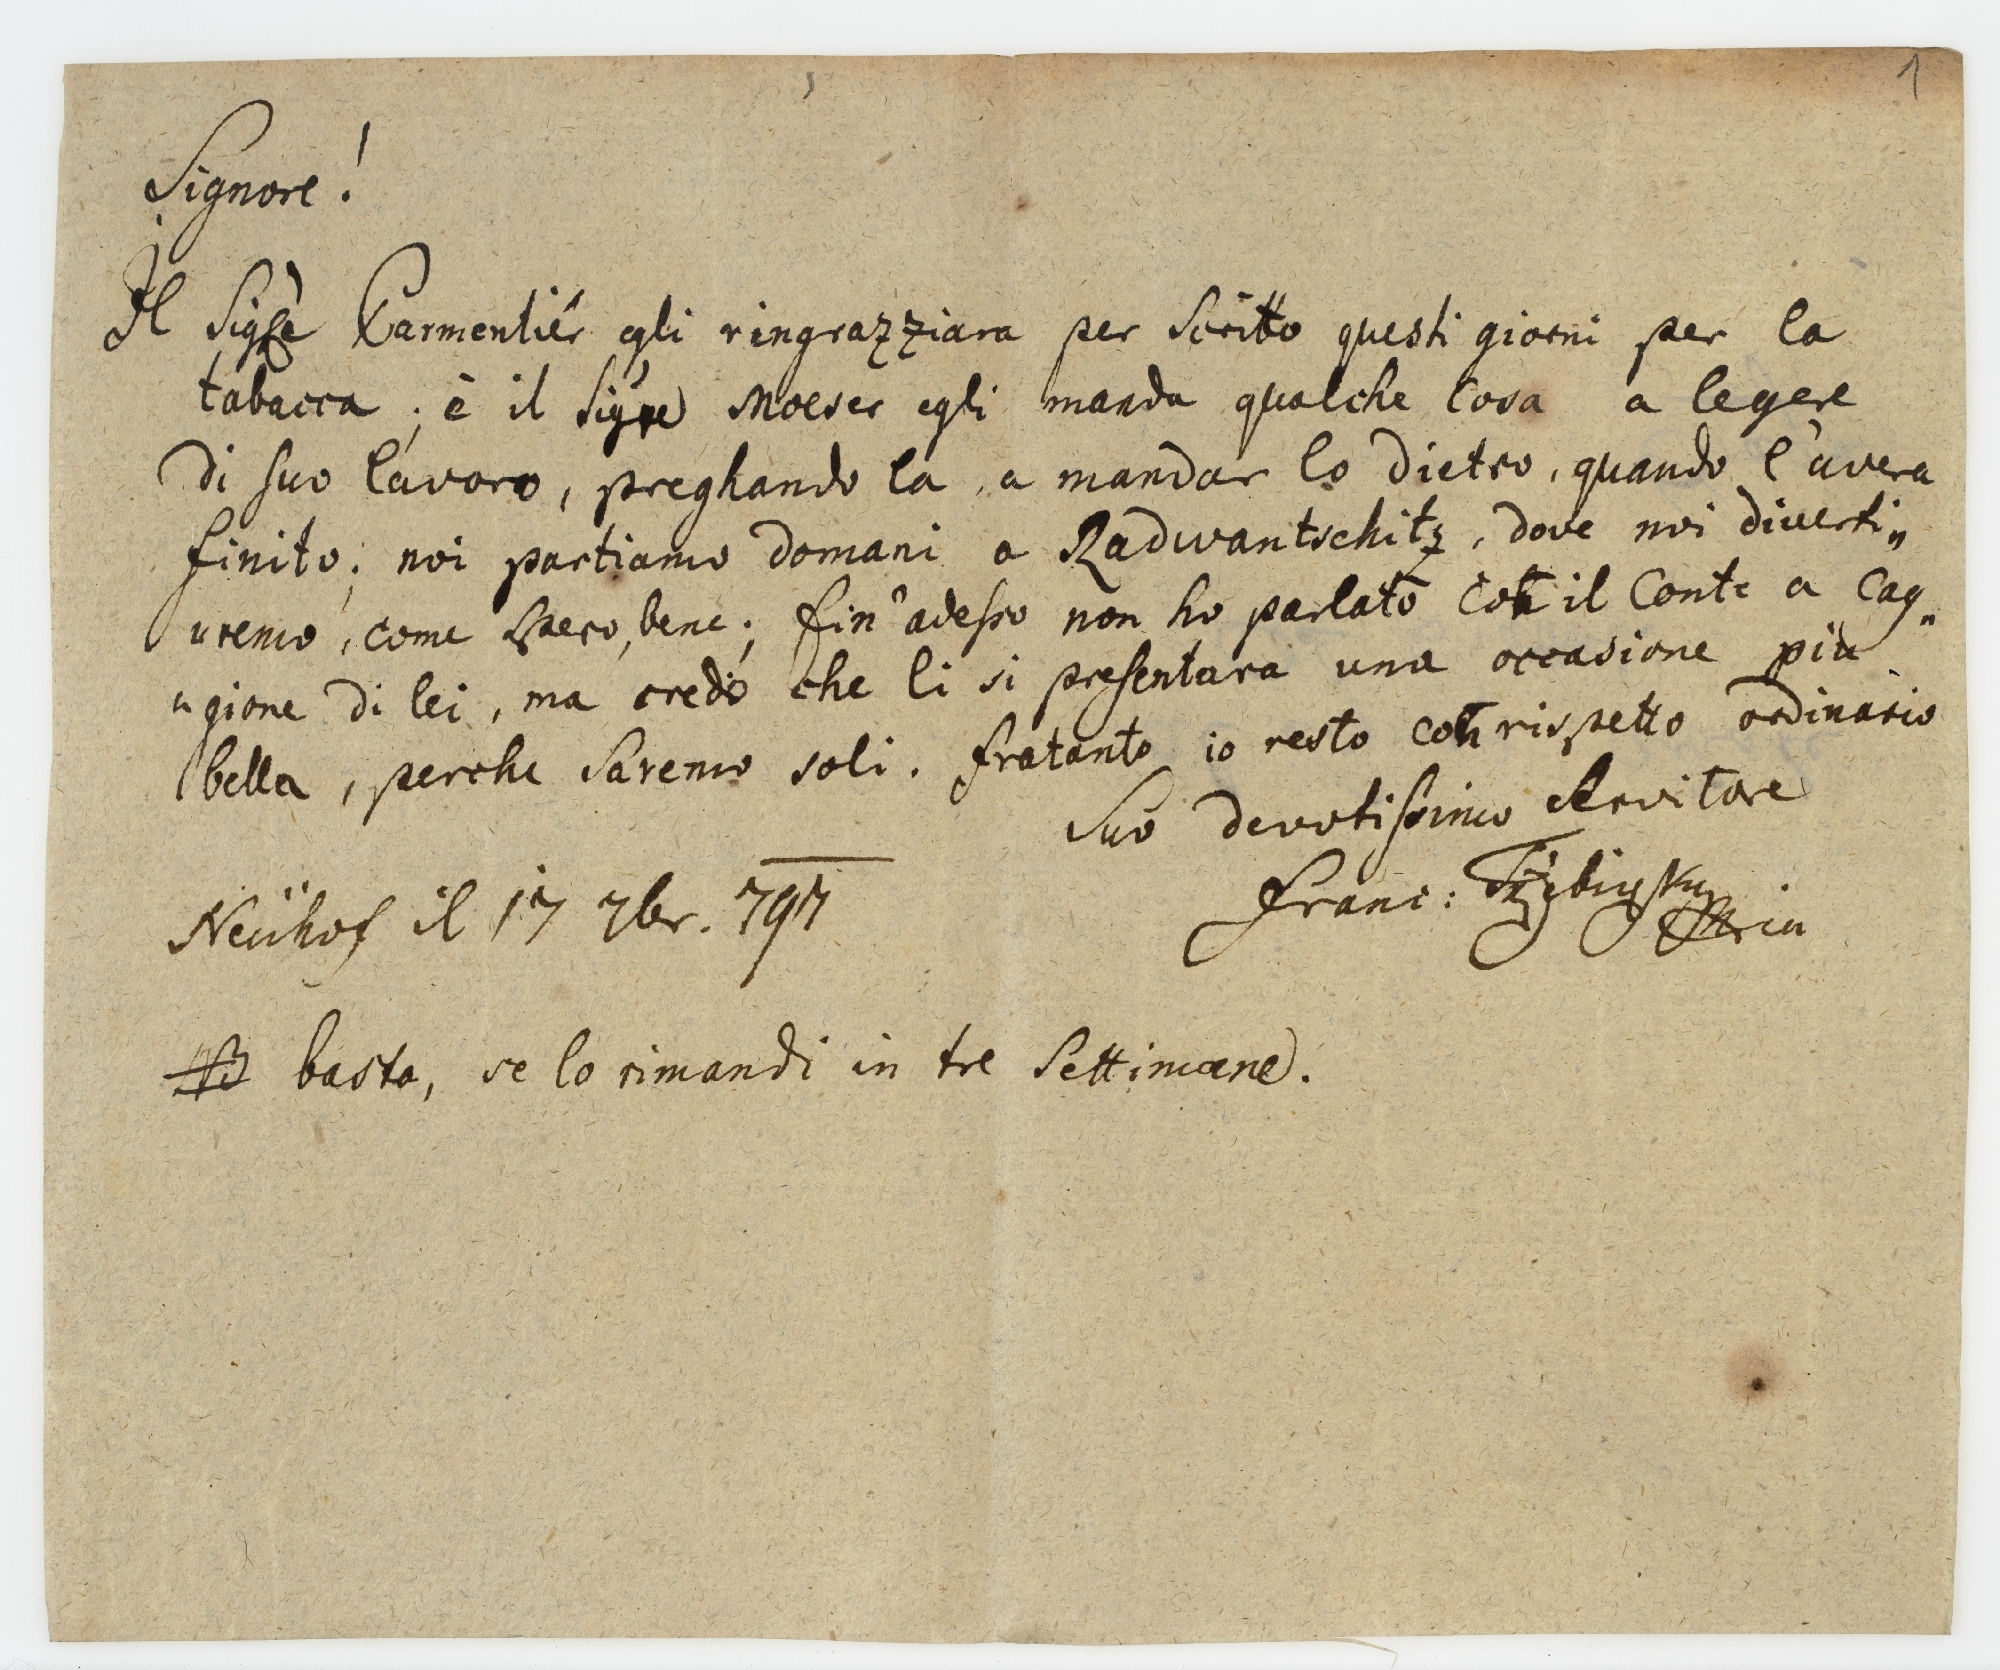 1
Signore!
Il Sigre Parmentiér egli ringrazziara per Scritto questi giorni per la
tabacca; è il Sigre Moeser egli manda qualche Cosa a legere
di suo lavoro, preghando la a mandar lo dietro, quando l'avera
finito; noi partiamo domani a Radwantschitz, dove noi diverti„
uremo, come spero, bene; fin'adesso non ho parlato con il Conte a Cag„
„gione di lei, ma credo che li si presentara una occasione più
bella, perche Saremo soli. fratanto io resto con rispetto ordinario
Suo devotissimo Servitore
Franc:
Neühof il 17 7br. 797
NB basta, se lo rimandi in tre Settimane.